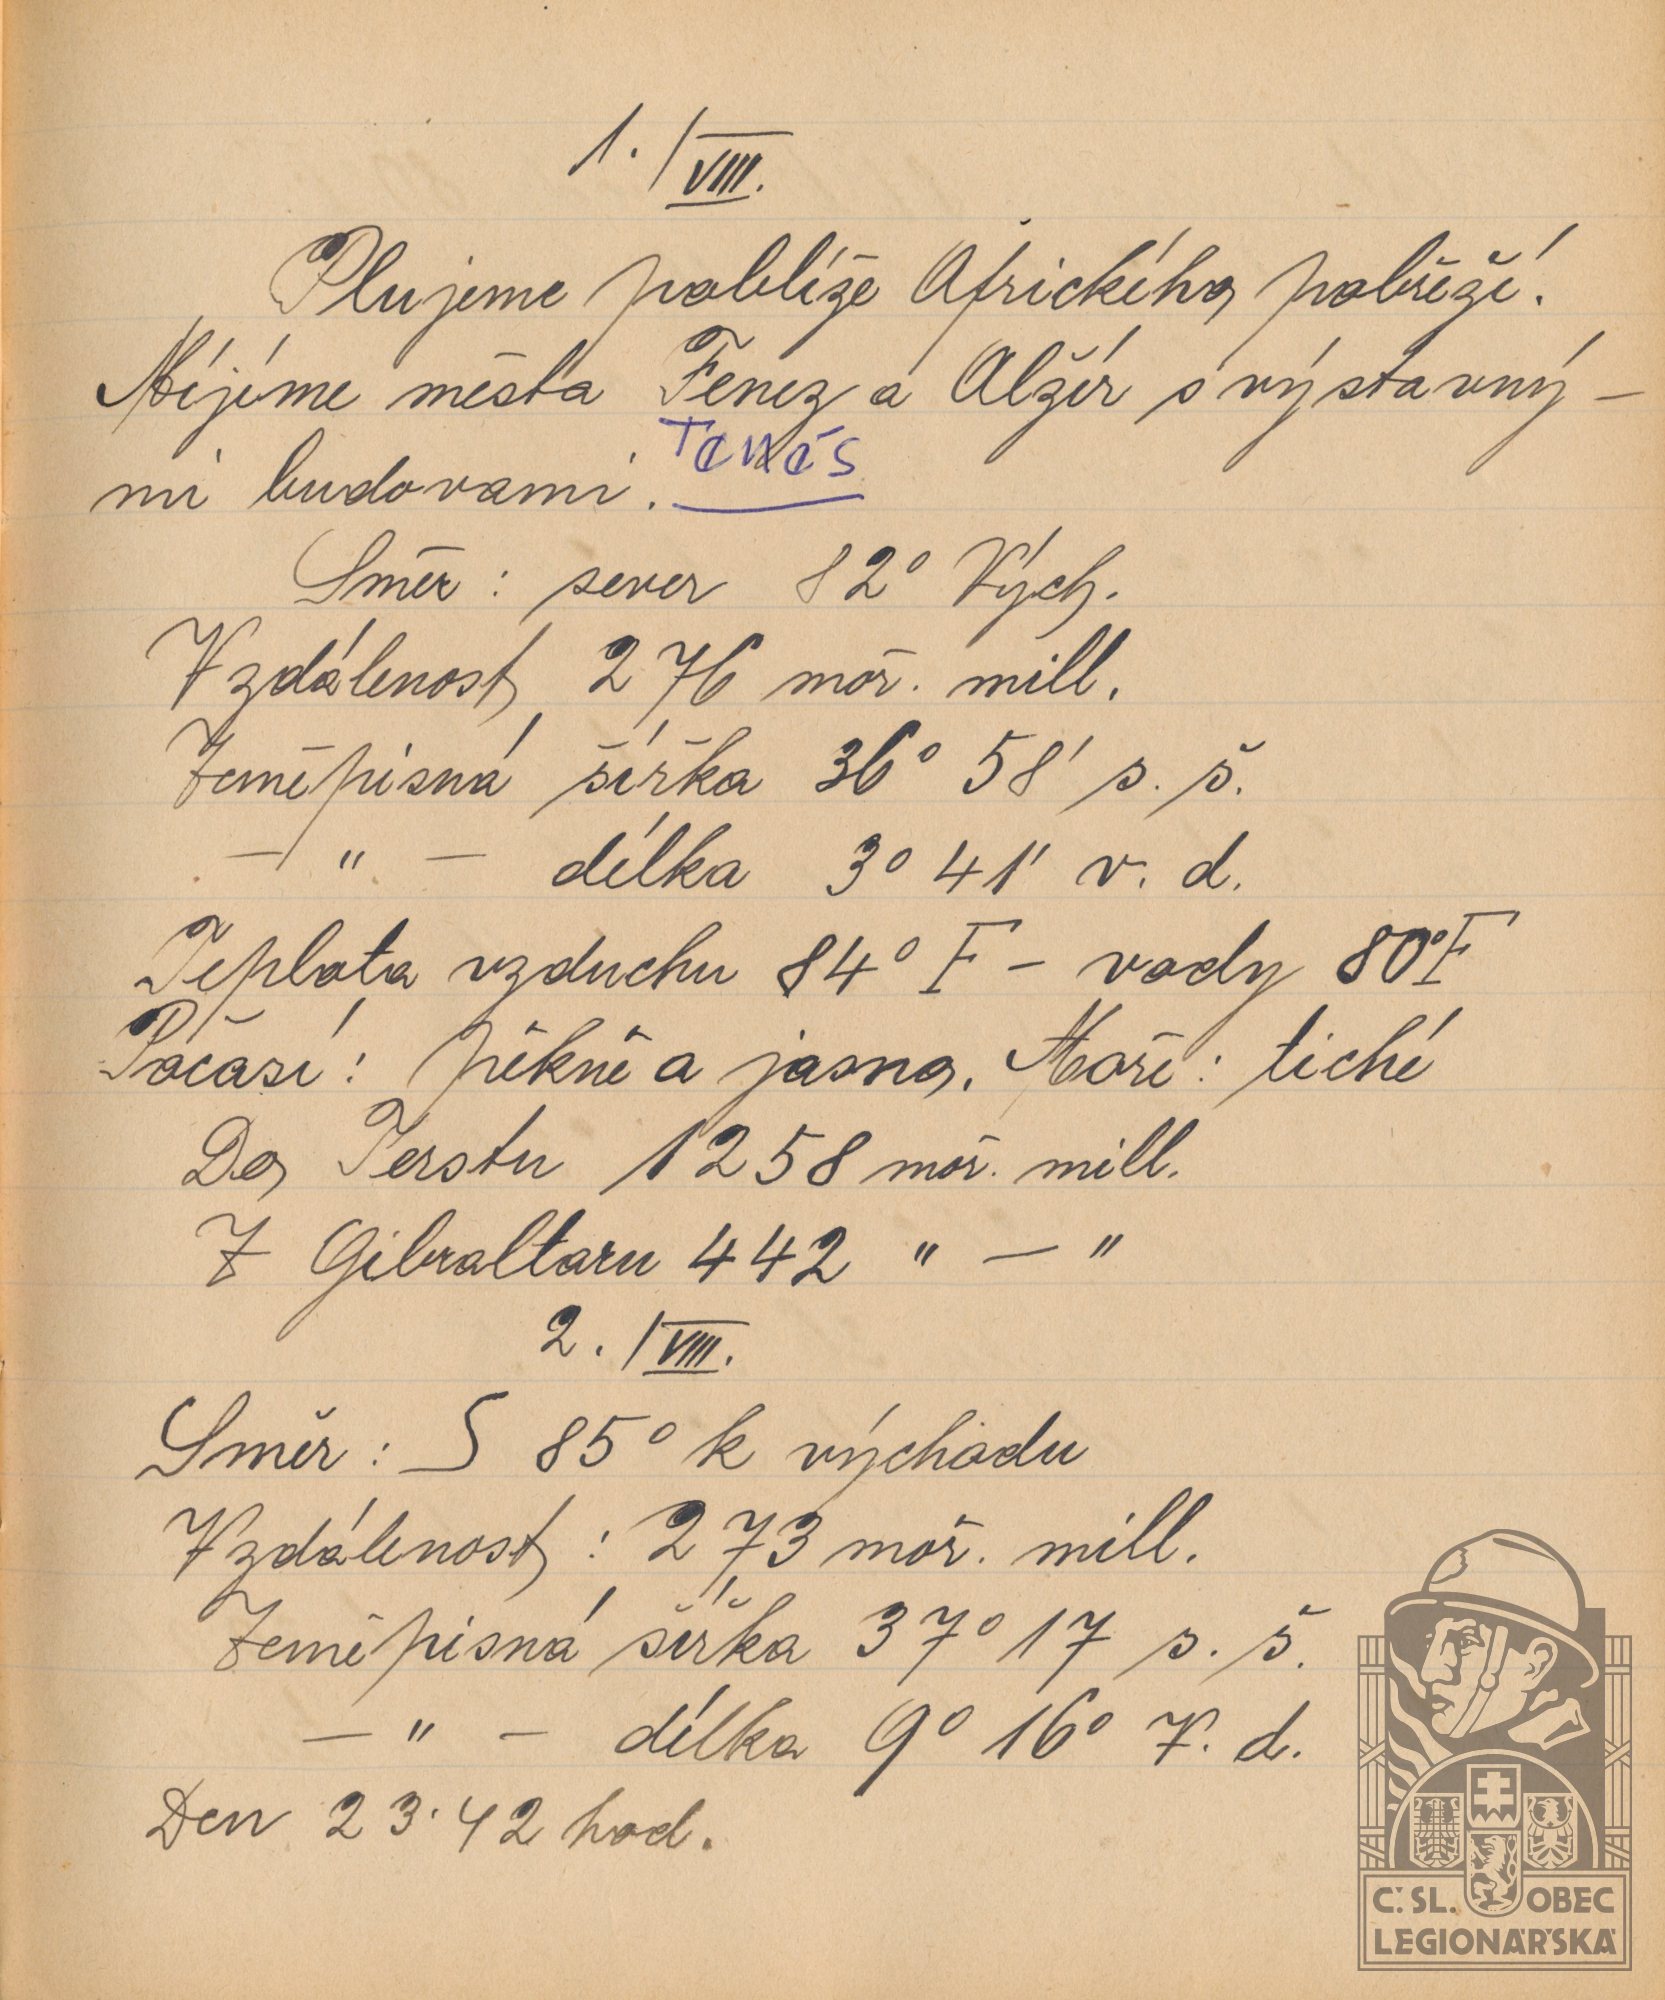 1./VIII.
Plujeme poblíže Afrického pobřeží.
Míjíme města Fenez a Alžír s výstavný-
mi budovami. Tenés
Směr: sever 82° Vých.
Vzdálenost 276 moř. mill.
Zeměpisná šířka 36° 58' s. š.
— " — délka 3° 41' v. d.
Teplota vzduchu 84° F – vody 80°F
Počasí: pěkně a jasno. Moře: tiché
Do Terstu 1258 moř. mill.
Z Gibraltaru 442 " — "
2./VIII.
Směr: S 85° k východu
Vzdálenost: 273 moř. mill.
Zeměpisná šířka 37° 17 s. š.
— " — délka 9° 16° V. d.
Den 23·42 hod.
Č. SL. OBEC
LEGIONÁŘSKÁ